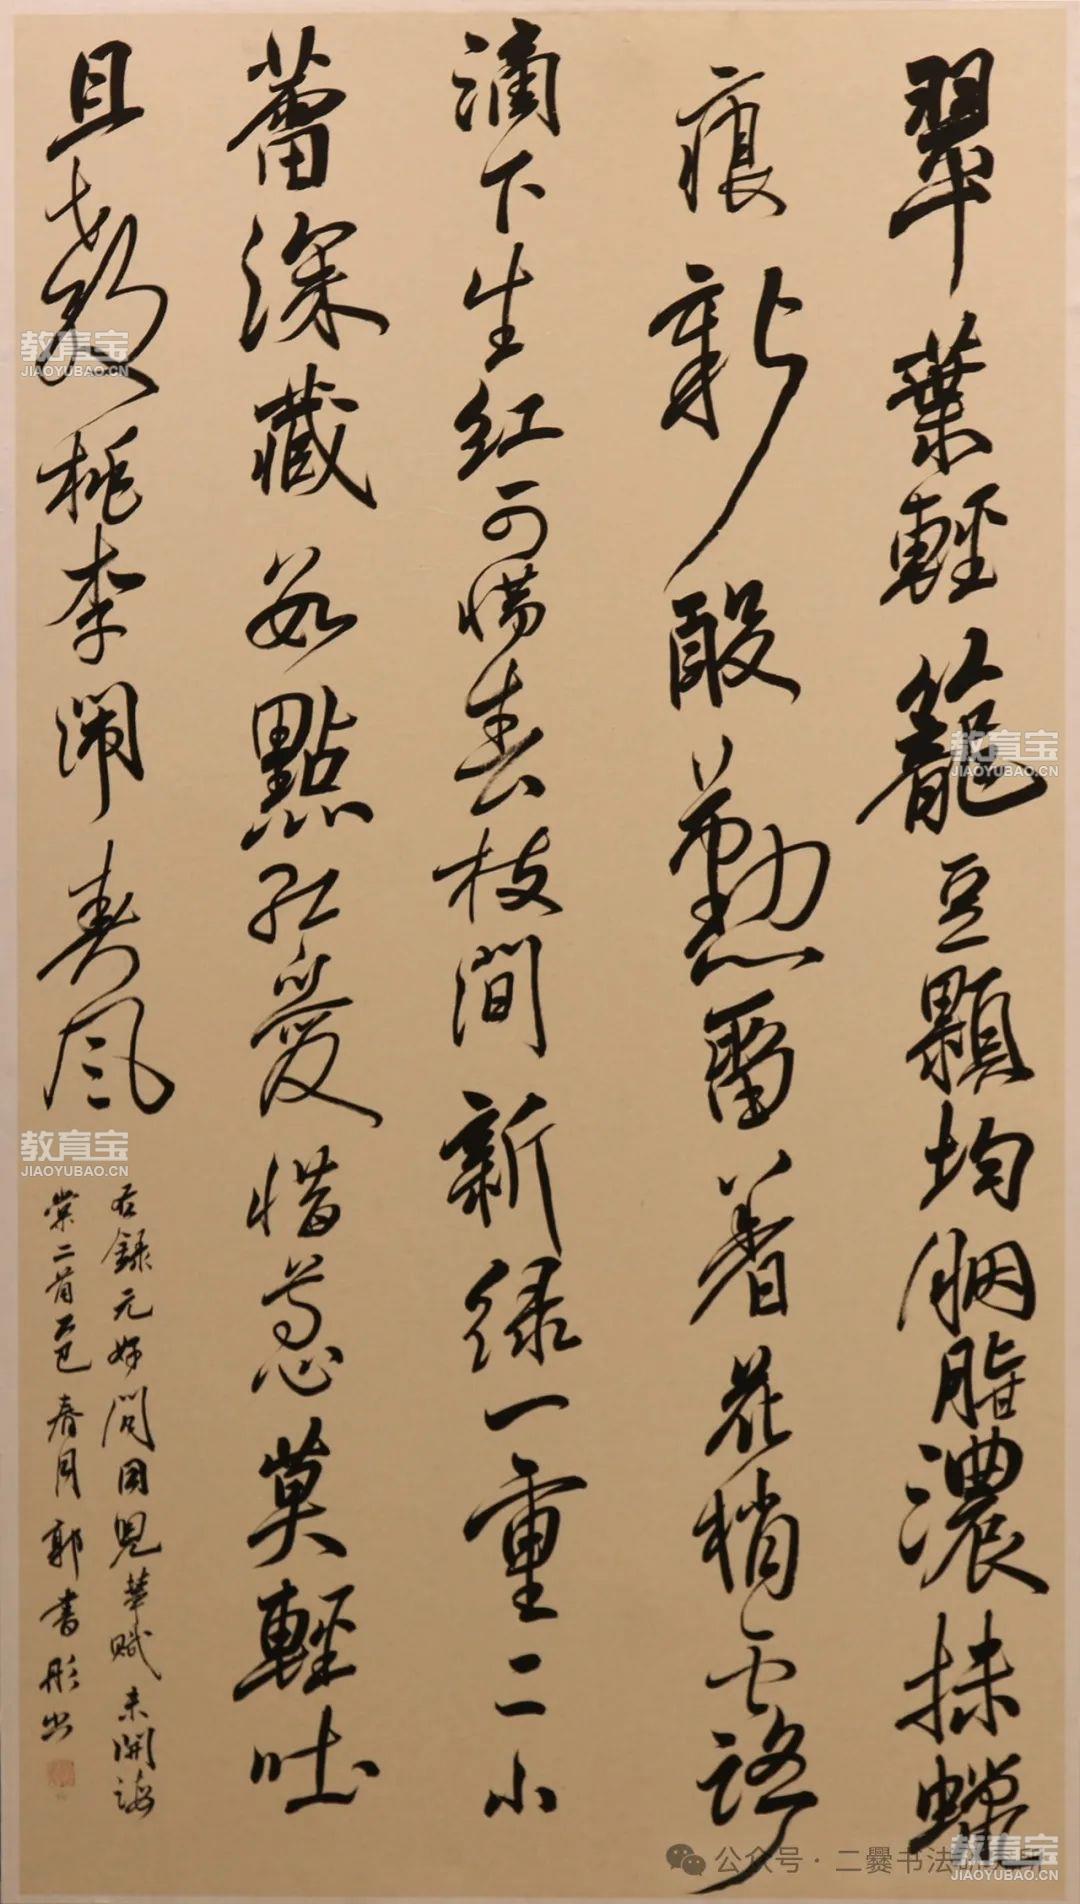 翠葉輕籠豆顆均胭脂濃抹蠟
痕新殷勤留着花梢露
滴下生紅可惜春枝間新綠一重二小
蕾深藏數點紅愛惜芳心莫輕吐
且教桃李闹春風
右錄元好問同兒輩賦未開海
棠二首乙巳春月郭書彤书
教育宝
JIAOYUBAO.CN
教育宝
JIAOYUBAO.CN
教育宝
JIAOYUBAO.CN
公众号·二爨书法
教育宝
JIAOYUBAO.CN